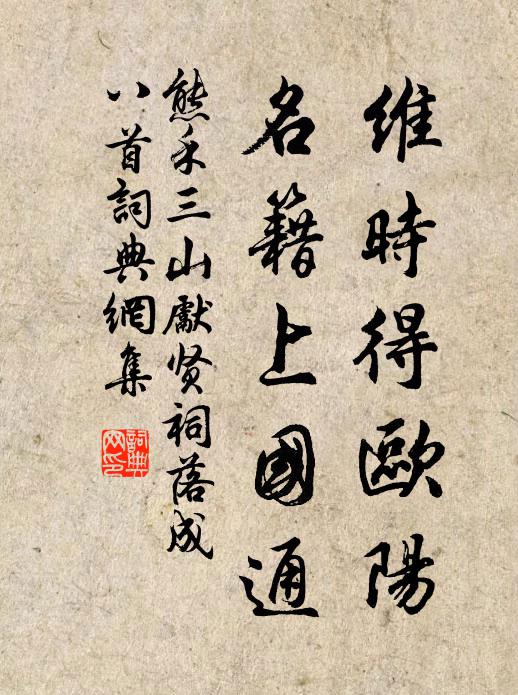 維時得歐陽
名籍上國通
熊禾三山獻贤祠落成
八首詞典網集
詞典網印